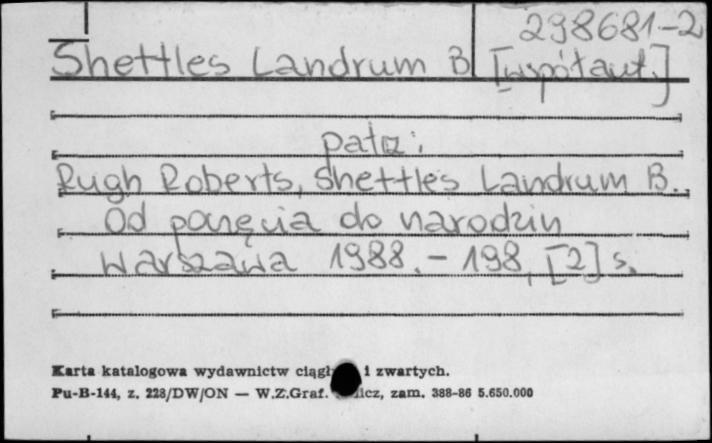 298681-2
Shettles Landrum B [współaut.]
patrz:
Rugh Roberts, Shettles Landrum B.
Od poczęcia do narodzin
Warszawa 1988. - 198, [2] s.
Karta katalogowa wydawnictw i zwartych.
Pu-B-144, z. 228/DW/ON — W.Z.Graf. zam. 388-86 5.650.000